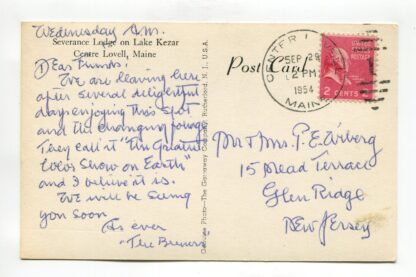 Wednesday A.M.
Severance Lodge on Lake Kezar
Centre Lovell, Maine
Dear Friends:
We are leaving here
after several delightful
days enjoying this spot
and the changing foliage
They call it "The Greatest
Color Show on Earth"
and I believe it is.
We will be seeing
you soon
As ever
"The Beiners"
Post Card
CENTER L
SEP 29
12 PM
1954
MAINE
UNITED STATES
POSTAGE
2 CENTS
Mr + Mrs. P. E. Wiberg
15 Mead Terrace
Glen Ridge
New Jersey
Photo—The Gannaway Company, Rutherford, N. J., U.S.A.